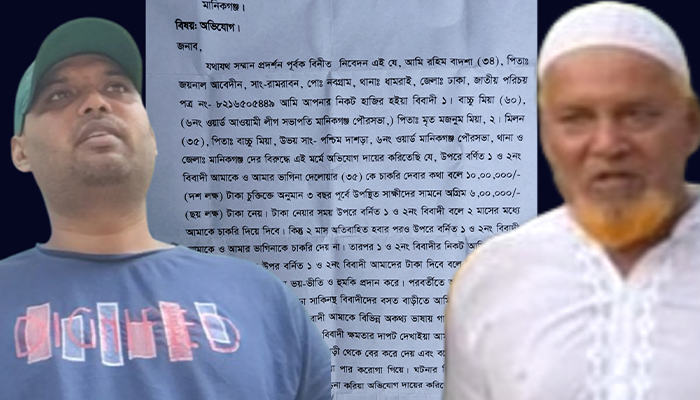 মানিকগঞ্জ।
বিষয়: অভিযোগ।
জনাব,
যথাযথ সম্মান প্রদর্শন পূর্বক বিনীত নিবেদন এই যে, আমি রহিম বাদশা (৩৪), পিতাঃ
জয়নাল আবেদীন, সাং-রামরাবন, পোঃ নবগ্রাম, থানাঃ ধামরাই, জেলাঃ ঢাকা, জাতীয় পরিচয়
পত্র নং- ৮২১৬৫০৫৪৪৯ আমি আপনার নিকট হাজির হইয়া বিবাদী ১। বাচ্চু মিয়া (৬০),
(৬নং ওয়ার্ড আওয়ামী লীগ সভাপতি মানিকগঞ্জ পৌরসভা), পিতাঃ মৃত মজনুম মিয়া, ২। মিলন
(৩৫), পিতাঃ বাচ্চু মিয়া, উভয় সাং- পশ্চিম দাশড়া, ৬নং ওয়ার্ড মানিকগঞ্জ পৌরসভা, থানা ও
জেলাঃ মানিকগঞ্জ দের বিরুদ্ধে এই মর্মে অভিযোগ দায়ের করিতেছি যে, উপরে বর্ণিত ১ ও ২নং
বিবাদী আমাকে ও আমার ভাগিনা দেলোয়ার (৩৫) কে চাকরি দেবার কথা বলে ১০,০০,০০০/-
(দশ লক্ষ) টাকা চুক্তিতে অনুমান ৩ বছর পূর্বে উপস্থিত সাক্ষীদের সামনে অগ্রিম ৬,০০,০০০/-
(ছয় লক্ষ) টাকা নেয়। টাকা নেওয়ার সময় উপরে বর্নিত ১ ও ২নং বিবাদী বলে ২ মাসের মধ্যে
আমাকে চাকরি দিয়ে দিবে। কিন্তু ২ মাস অতিবাহিত হবার পরও উপরে বর্নিত ১ ও ২নং বিবাদী
আমাকে ও আমার ভাগিনাকে চাকরি দেয় না। তারপর ১ ও ২নং বিবাদীর নিকট
উপর বর্নিত ১ ও ২নং বিবাদী আমাদের টাকা দিবে বলে
ভয়-ভীতি ও হুমকি প্রদান করে। পরবর্তীতে
সাকিনস্থ বিবাদীদের বসত বাড়ীতে
আমাকে বিভিন্ন অকথ্য ভাষায়
বিবাদী ক্ষমতার দাপট দেখাইয়া
থেকে বের করে দেয় এবং
পার করোগা গিয়ে। ঘটনার
করিয়া অভিযোগ দায়ের